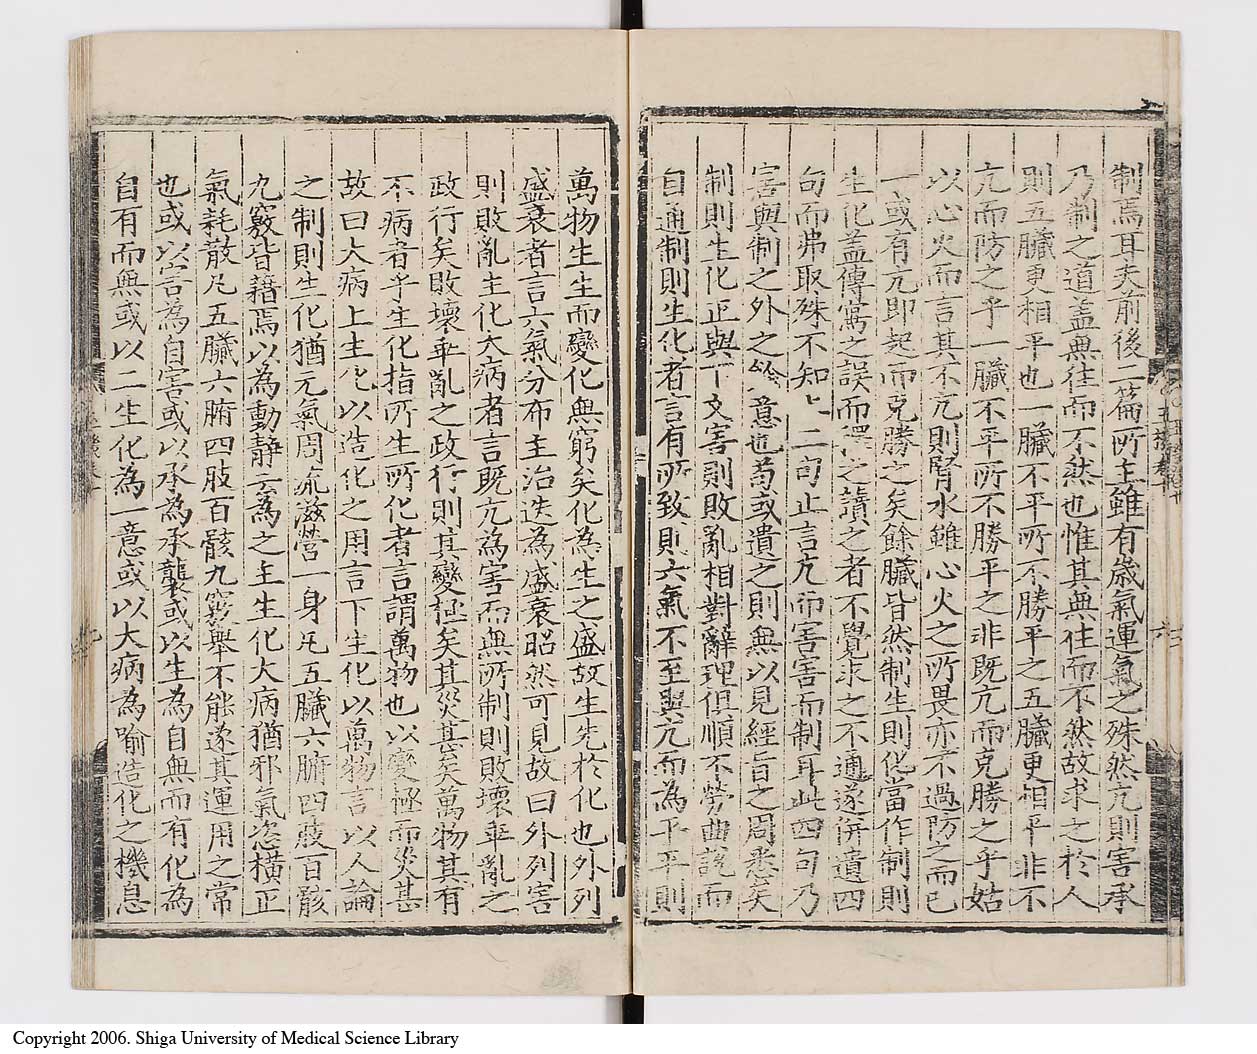 制焉耳夫前後二篇所主雖有歲氣運氣之殊然亢則害承
乃制之道盖無往而不然也惟其無往而不然故求之於人
則五臟更相平也一臟不平所不勝平之五臟更相平非不
亢而防之乎一臟不平所不勝平之非既亢而克勝之乎姑
以心火而言其不亢則腎水雖心火之所畏亦不過防之而已
一或有亢即起而克勝之矣餘臟皆然制生則化當作制則
生化盖傳寫之誤而釋之讀之者不覺求之不通遂併遺四
句而弗取殊不知上二句止言亢而害害而制耳此四句乃
害與制之外之餘意也苟或遺之則無以見經旨之周悉矣
制則生化正與下文害則敗亂相對辭理俱順不勞曲說而
自通制則生化者言有所致則六氣不至與亢而為平平則
萬物生生而變化無窮矣化為生之盛故生先於化也外列
盛衰者言六氣分布主治迭為盛衰昭然可見故曰外列害
則敗亂主化大病者言既亢為害而無所制則敗壞乖亂之
政行矣敗壞乖亂之政行則其變極矣其災甚矣萬物其有
不病者乎生化指所生所化者言謂萬物也以變極而災甚
故曰大病上生化以造化之用言下生化以萬物言以人論
之制則生化猶元氣周流滋營一身凡五臟六腑四肢百骸
九竅皆籍焉以為動靜云為之主生化大病猶邪氣恣橫正
氣耗散凡五臟六腑四肢百骸九竅舉不能遂其運用之常
也或以害為自害或以承為承襲或以生為自無而有化為
自有而無或以二生化為一意或以大病為喻造化之機息
Copyright 2006. Shiga University of Medical Science Library